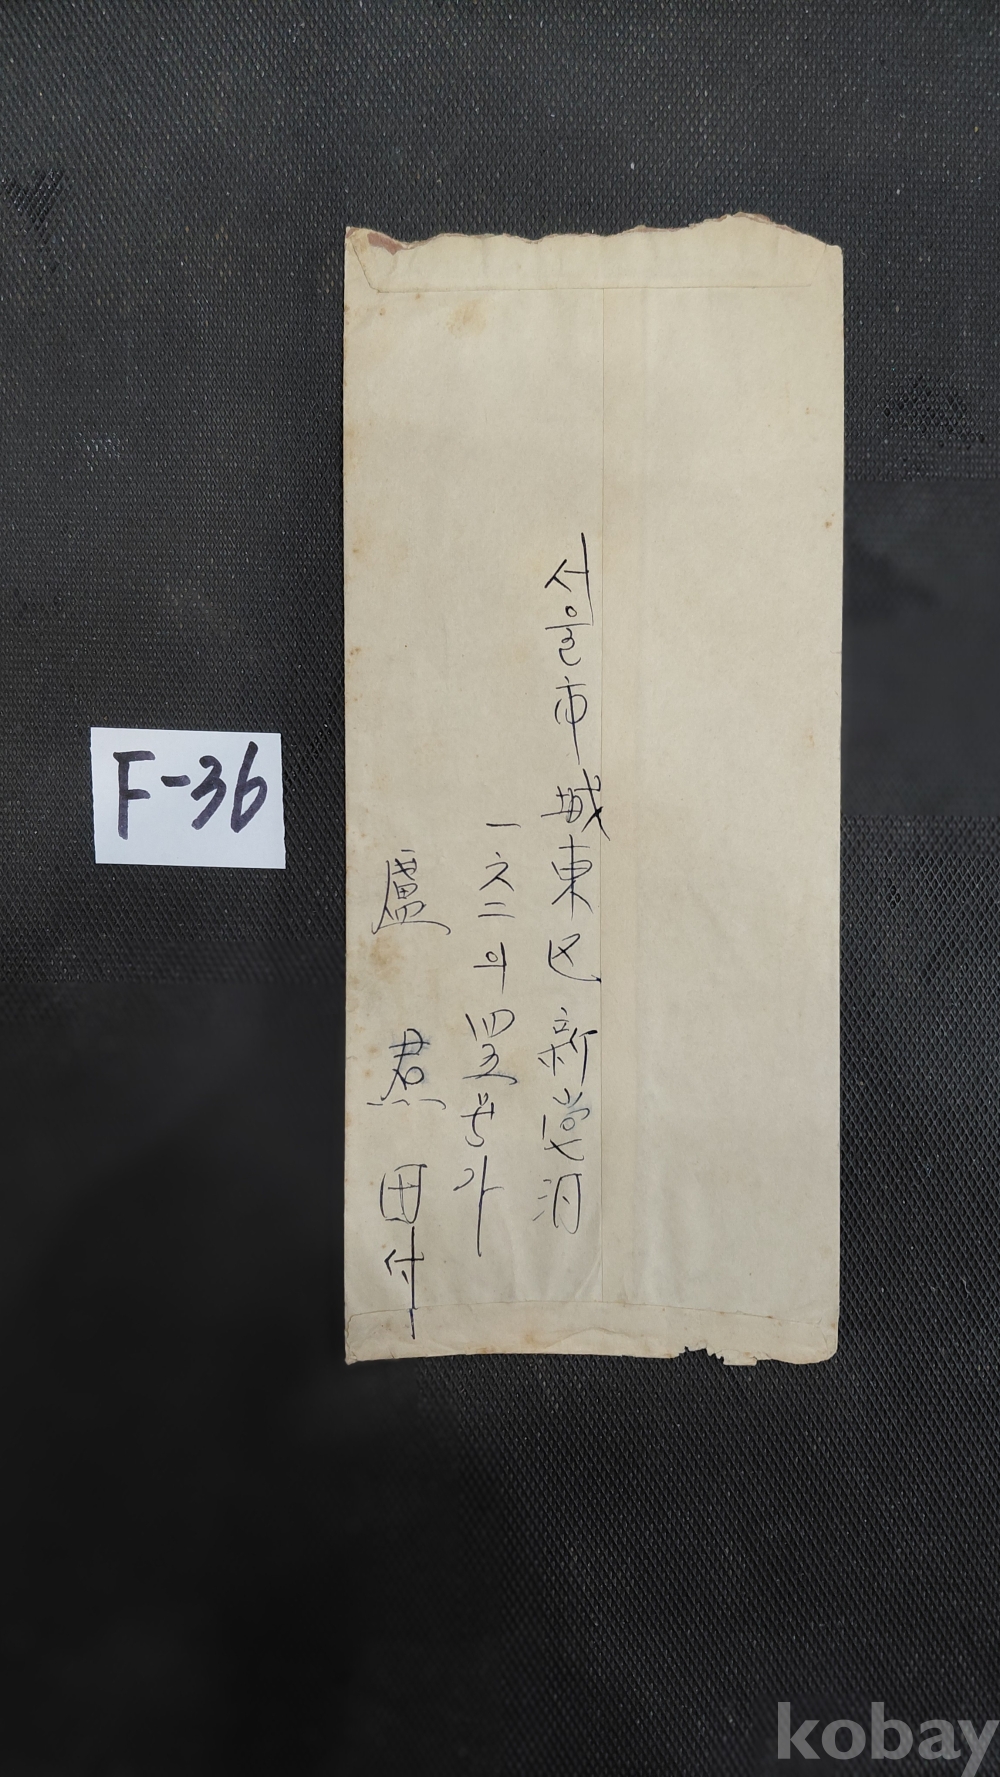 F-36
서울市 城東区 新
一六二의 四五号가
盧 焄 田付
kobay